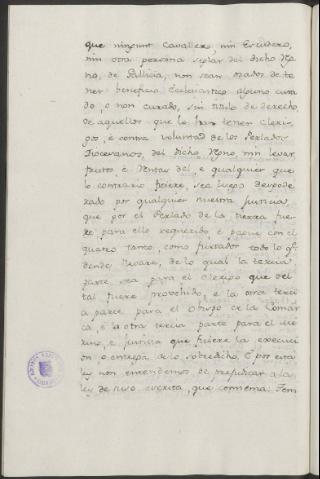 que ningunt Cavallero, nin Escudero,
nin otra persona seglar del dicho Rg
no, de Gallicia, non sean osados de te
ner beneficio Ecclesiastico alguno cura
do, o non curado, sin titulo de derecho,
de aquellos que lo han tener Cleri
gos, e contra voluntad de los Perlados
Diocesanos, del dicho Rgno, nin levar
frutos e Rentas del e qualquier que
lo contrario ficiere, sea luego despode
rado por qualquier nuestra justicia,
que por el Perlado de la tierra fue
re para ello requerido e pague con el
quatro tanto, como furtador todo lo q
dende levare, de lo qual la tercia
parte sea para el Clerigo que del
tal fuere provehido, e la otra terci
a parte para el Obispo de la Comar
ca, e la otra tercia parte para el Me
rino, e justicia que ficiere la execuci
on o entrega de lo sobredicho, E por esta
ley non entendemos de prejudicar a la
ley de suso escrita, que comienza: Tem